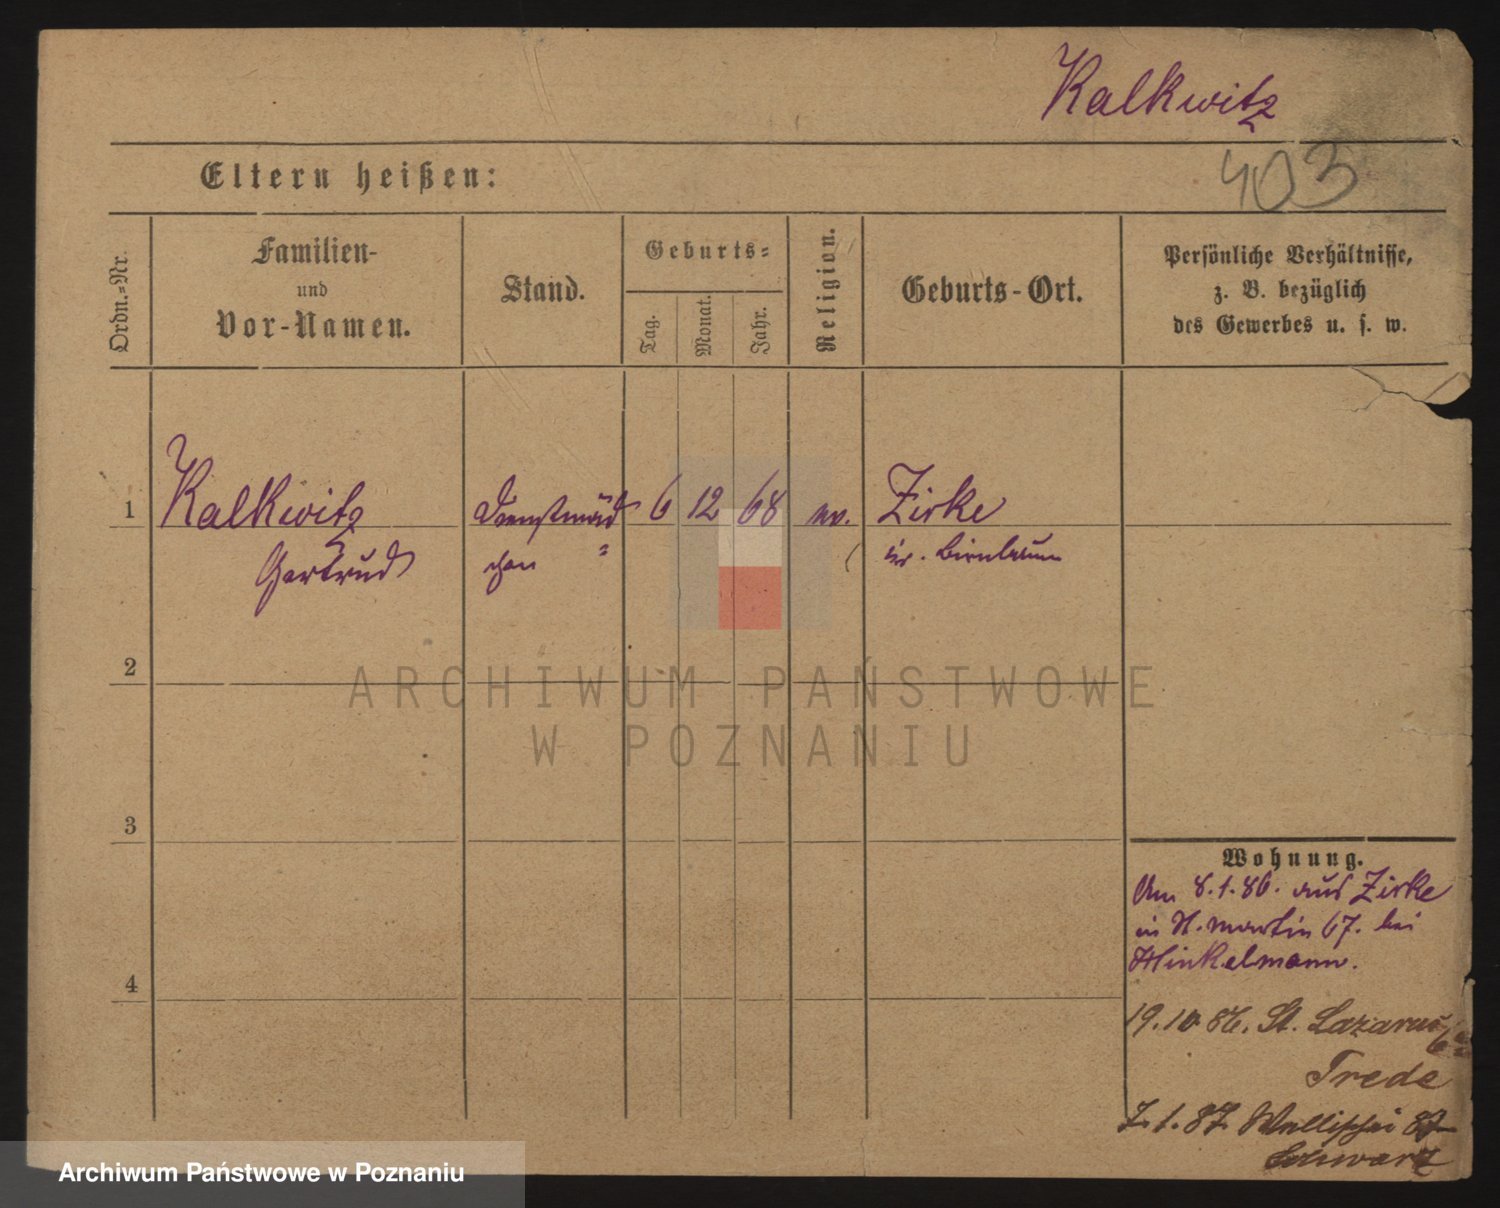 Kalkwitz
403
Eltern heißen:
Ordn.-Nr.
Familien-
und
Vor-Namen.
Stand.
Geburts-
Tag.
Monat.
Jahr.
Religion.
Geburts-Ort.
Persönliche Verhältnisse,
z. B. bezüglich
des Gewerbes u. s. w.
1 Kalkwitz Dienstmäd 6 12 68 ev. Zirke
Gertrud chen Kr. Birnbaum
2
3
4
Wohnung.
Am 8.1.86. aus Zirke
in St. Martin 67. bei
Hinkelmann.
19.10 86. St. Lazarus
Trede
7.1.87. Wallischei
Schwarz
ARCHIWUM PAŃSTWOWE
W POZNANIU
Archiwum Państwowe w Poznaniu